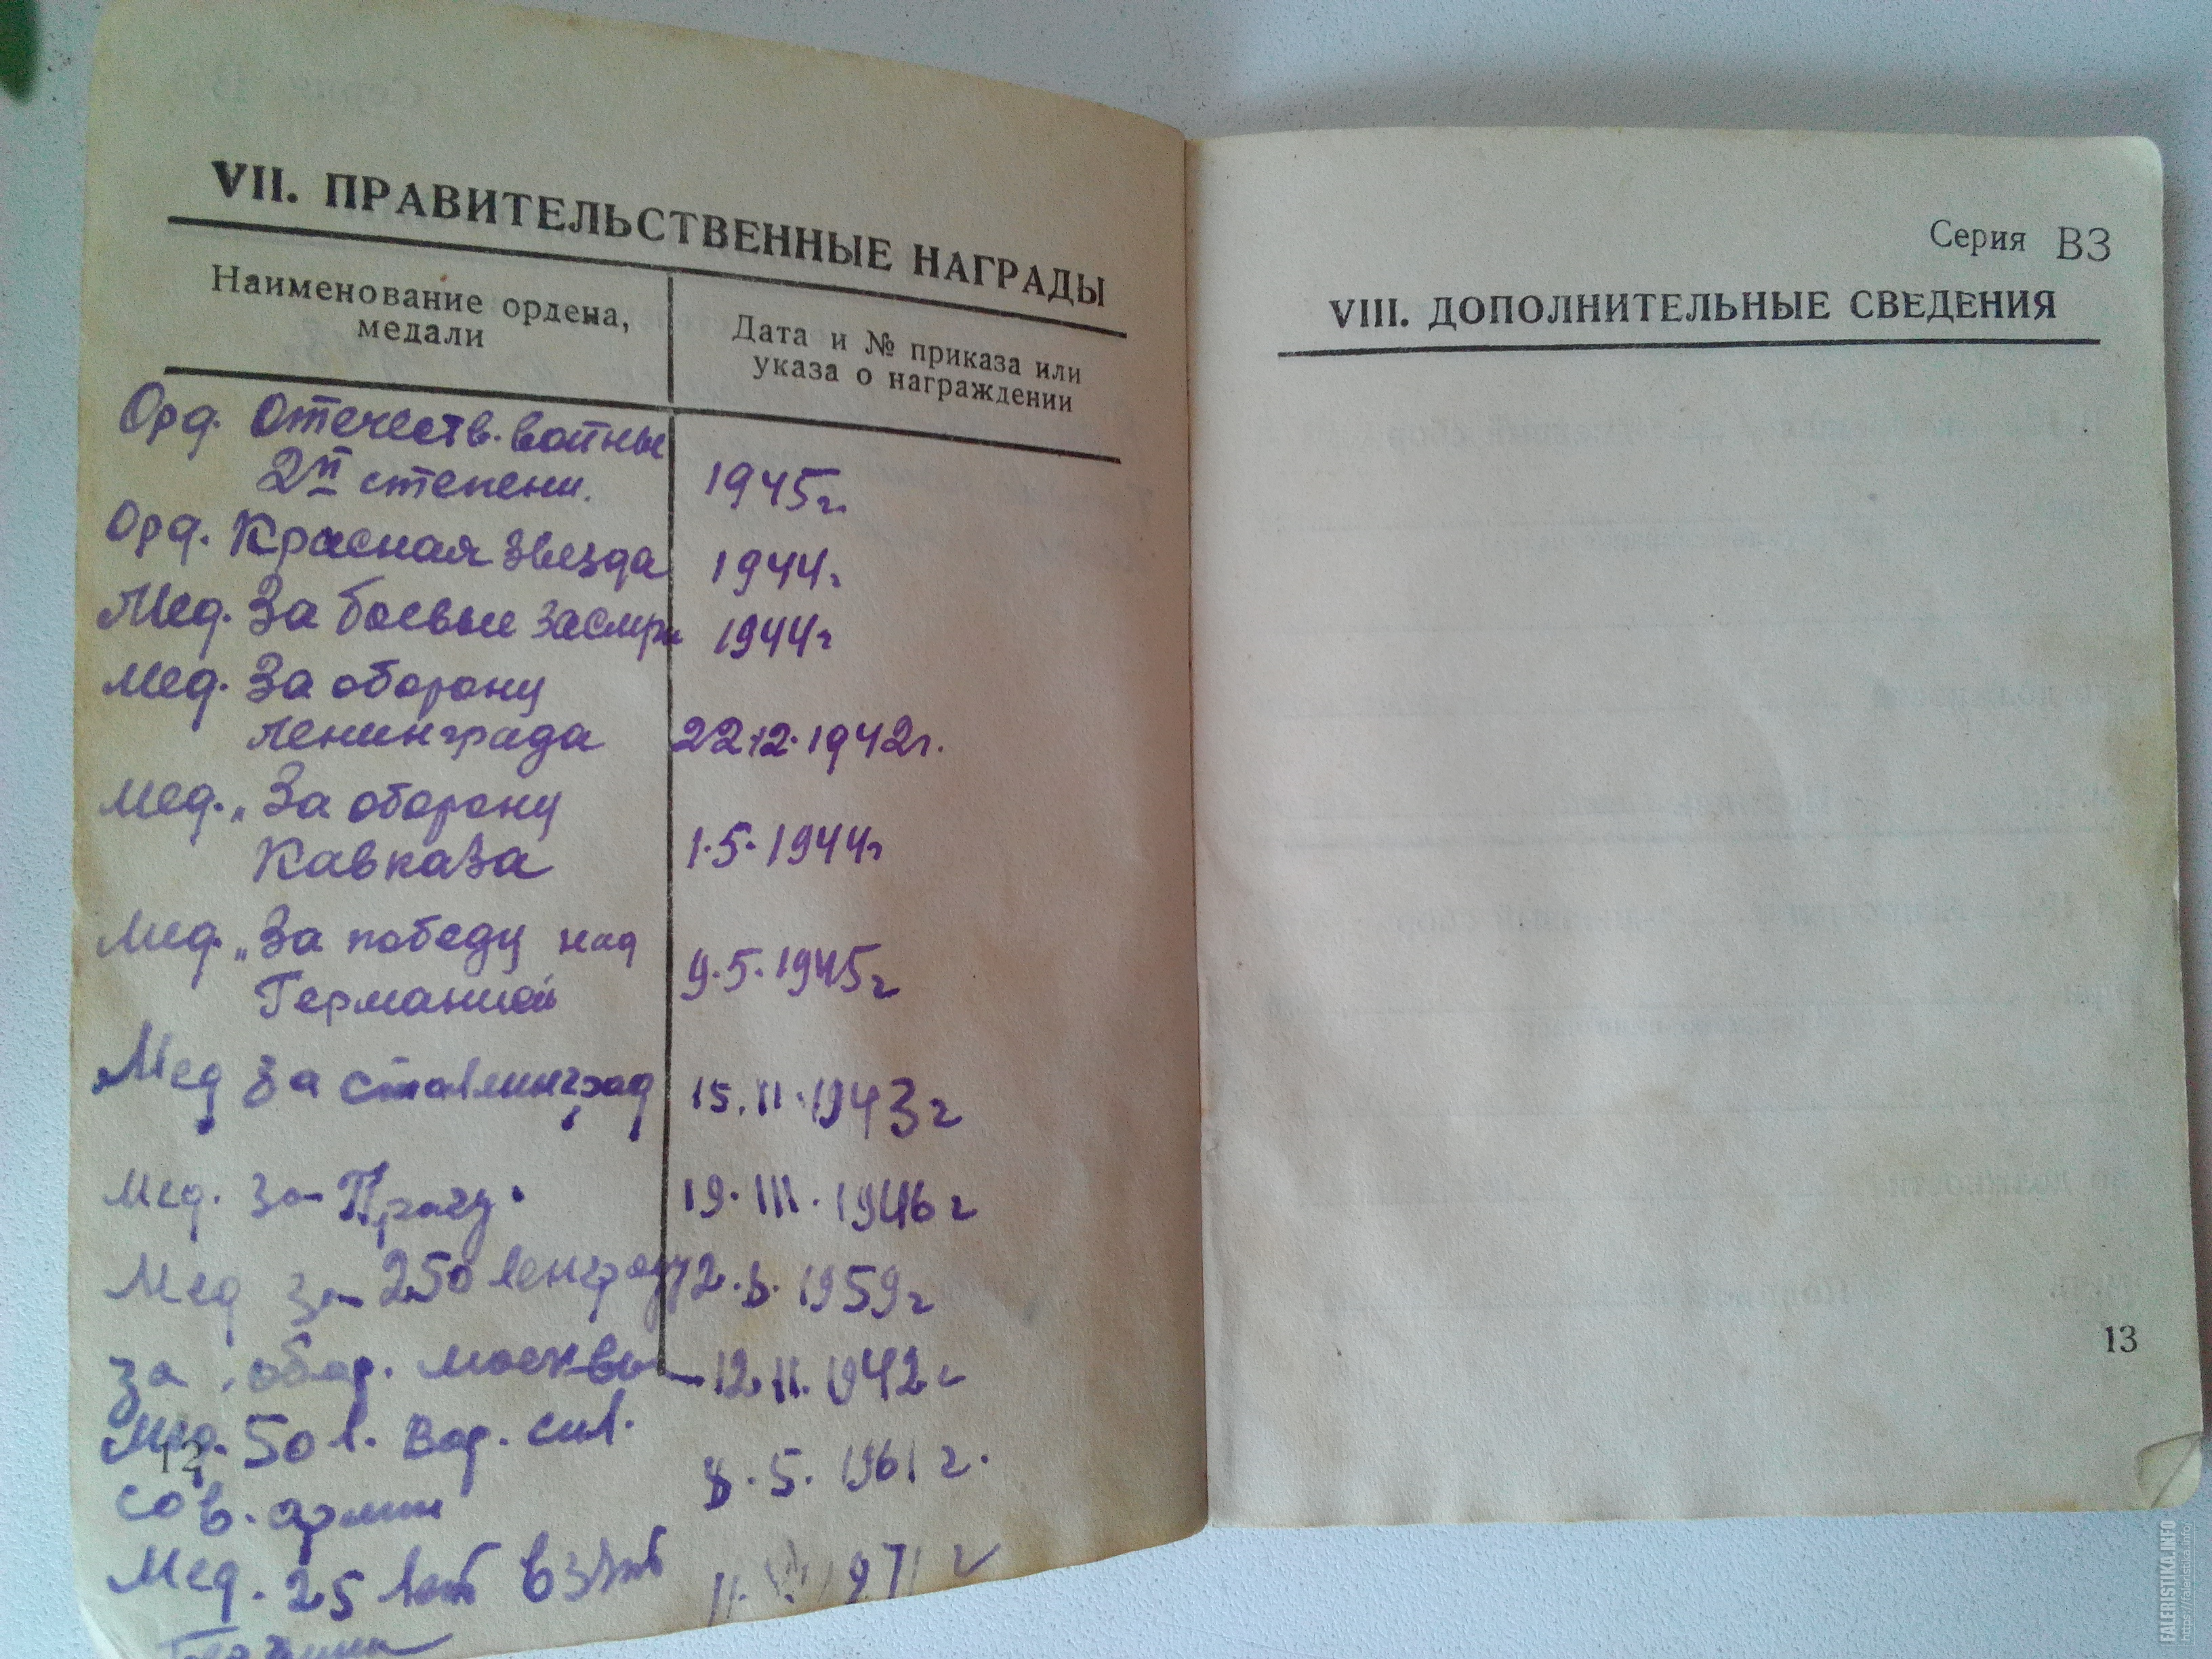 VII. ПРАВИТЕЛЬСТВЕННЫЕ НАГРАДЫ
Наименование ордена,
медали
Дата и № приказа или
указа о награждении
Орд. Отечеств. войны
2й степени. 1945г.
Орд. Красная Звезда 1944г
Мед. За боевые заслуги 1944г
Мед. За оборону
Ленинграда 22.12.1942г.
Мед. „За оборону
Кавказа 1.5.1944г
Мед. „За победу над
Германией 9.5.1945г
Мед за сталинград 15.II.1943г
Мед. за Прагу. 19.III.1946г
Мед за 250 ленграду 1959г
за обор. москвы 12.II.1942г
Мед. 50 л. вор. сил.
сов. армии 8.5.1961г.
12
Мед. 25 лет 1971г
Серия ВЗ
VIII. ДОПОЛНИТЕЛЬНЫЕ СВЕДЕНИЯ
13
FALERISTIKA.INFO
https://faleristika.info/